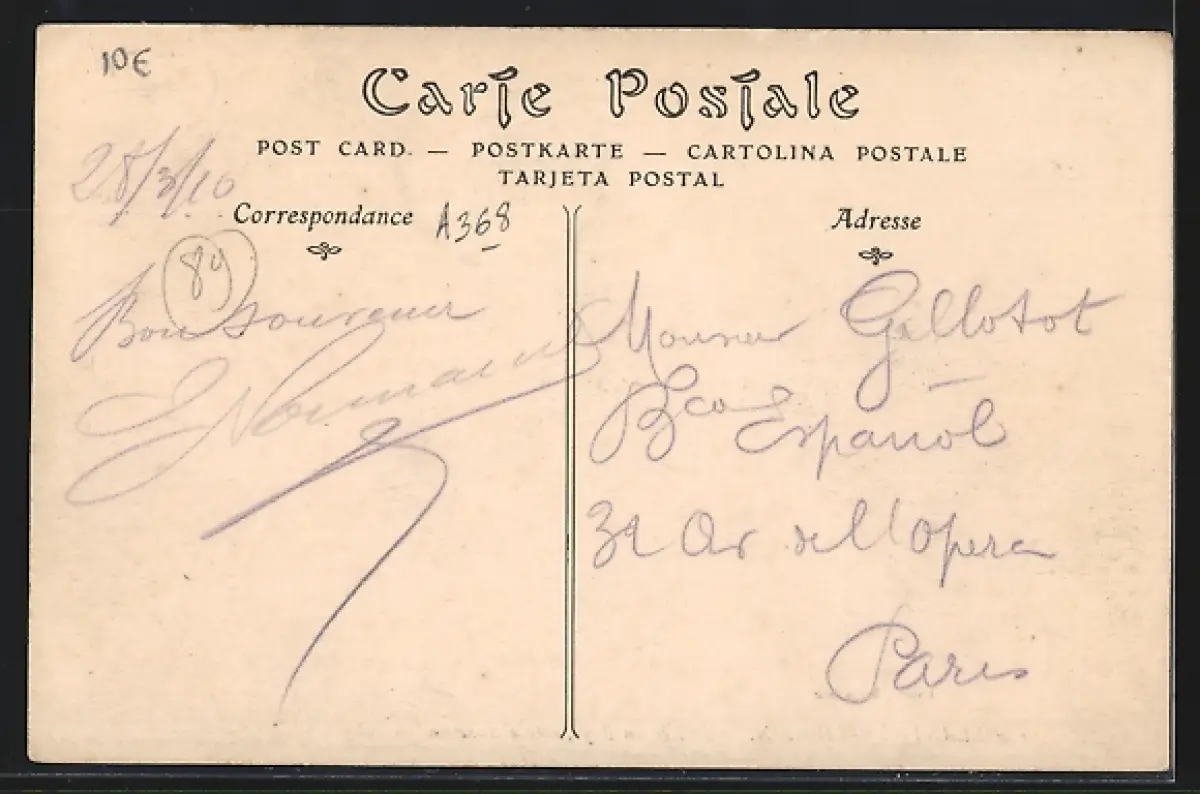 10€
Carte Postale
POST CARD. — POSTKARTE — CARTOLINA POSTALE
TARJETA POSTAL
28/3/10
Correspondance
A368
89
Bon souvenir
Adresse
Monsieur Gillotot
Bco Español
Av de l'Opera
Paris